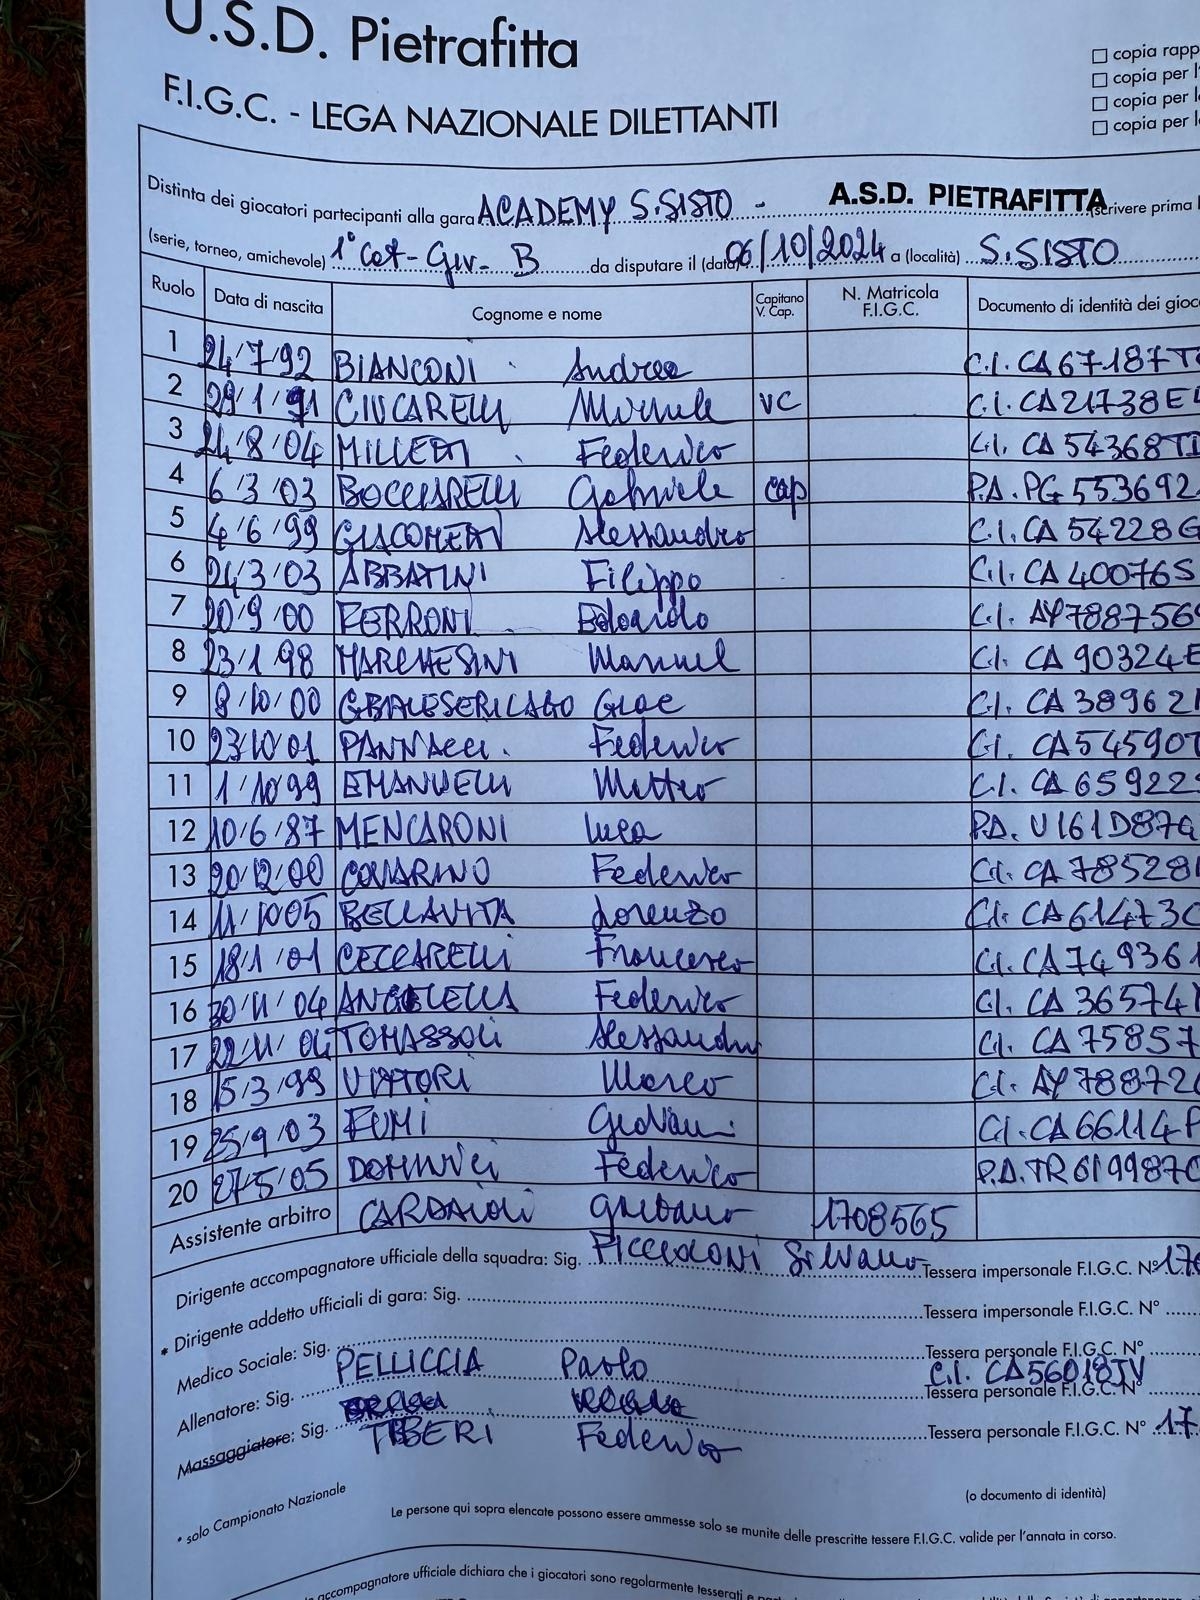 U.S.D. Pietrafitta
F.I.G.C. - LEGA NAZIONALE DILETTANTI
copia rapp
copia per l'
copia per l
copia per l
Distinta dei giocatori partecipanti alla gara ACADEMY S.SISTO - A.S.D. PIETRAFITTA (scrivere prima l
(serie, torneo, amichevole) 1° Cat- Gir- B da disputare il (data) 06/10/2024 a (località) S.SISTO
Ruolo Data di nascita Cognome e nome Capitano V. Cap. N. Matricola F.I.G.C. Documento di identità dei gioc
1 24/7/92 BIANCONI Andrea C.I. CA67187T
2 29/1/91 CIUCARELLI Michele VC C.I. CA21738E
3 21/8/04 MILLETTI Federico C.I. CA54368T
4 6/3/03 BOCCIARELLI Gabriele cap P.A. PG553692
5 4/6/99 GIACOMETTI Alessandro C.I. CA54228G
6 24/3/03 ABBATINI Filippo C.I. CA40076S
7 20/9/00 FERRONI Edoardo C.I. AY788756
8 23/1/98 MARCHESINI Manuel C.I. CA90324E
9 8/10/00 C.I. CA38962
10 23/10/01 PANNACCI Federico C.I. CA54590T
11 1/10/99 EMANUELLI Matteo C.I. CA65922
12 10/6/87 MENCARONI Luca P.A. U161D87
13 20/12/00 COVARINO Federico C.I. CA78528
14 11/10/05 BELLAVITA Lorenzo C.I. CA61473
15 18/1/01 CECCARELLI Francesco C.I. CA74936
16 30/11/04 ANGELELLA Federico C.I. CA36574
17 22/11/04 TOMASSOLI Alessandro C.I. CA75857
18 15/3/99 VITTORI Marco C.I. AY78872
19 25/9/03 FUMI Giovanni C.I. CA66114P
20 27/5/05 DOMINICI Federico P.A. TR619987
Assistente arbitro CARDAIOLI 1708565
Dirigente accompagnatore ufficiale della squadra: Sig. PICCIOLONI Silvano Tessera impersonale F.I.G.C. N° 170
* Dirigente addetto ufficiali di gara: Sig. Tessera impersonale F.I.G.C. N°
Medico Sociale: Sig. Tessera personale F.I.G.C. N°
Allenatore: Sig. PELLICCIA Paolo C.I. CA56018JV Tessera personale F.I.G.C. N°
Massaggiatore: Sig. TIBERI Federico Tessera personale F.I.G.C. N° 17
(o documento di identità)
* solo Campionato Nazionale
Le persone qui sopra elencate possono essere ammesse solo se munite delle prescritte tessere F.I.G.C. valide per l'annata in corso.
accompagnatore ufficiale dichiara che i giocatori sono regolarmente tesserati e